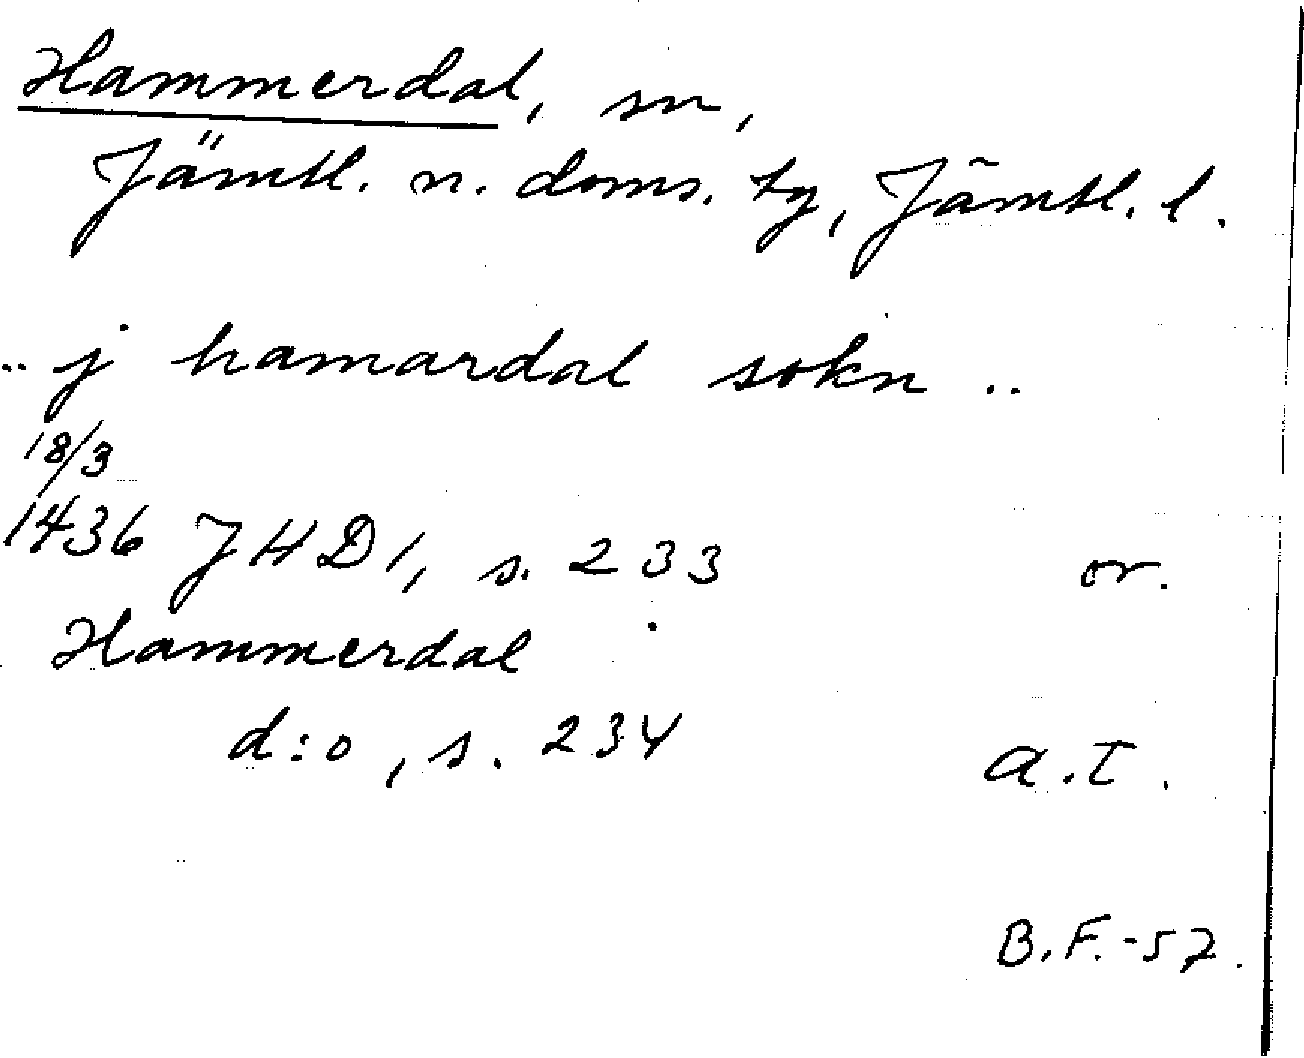 Hammerdal, sn,
Jämtl. n. doms. tg, Jämtl. l.
.. j hamardal sokn ..
18/3
1436 JHD 1, s. 233 or.
Hammerdal
d:o, s. 234 a.T.
B.F.-57.